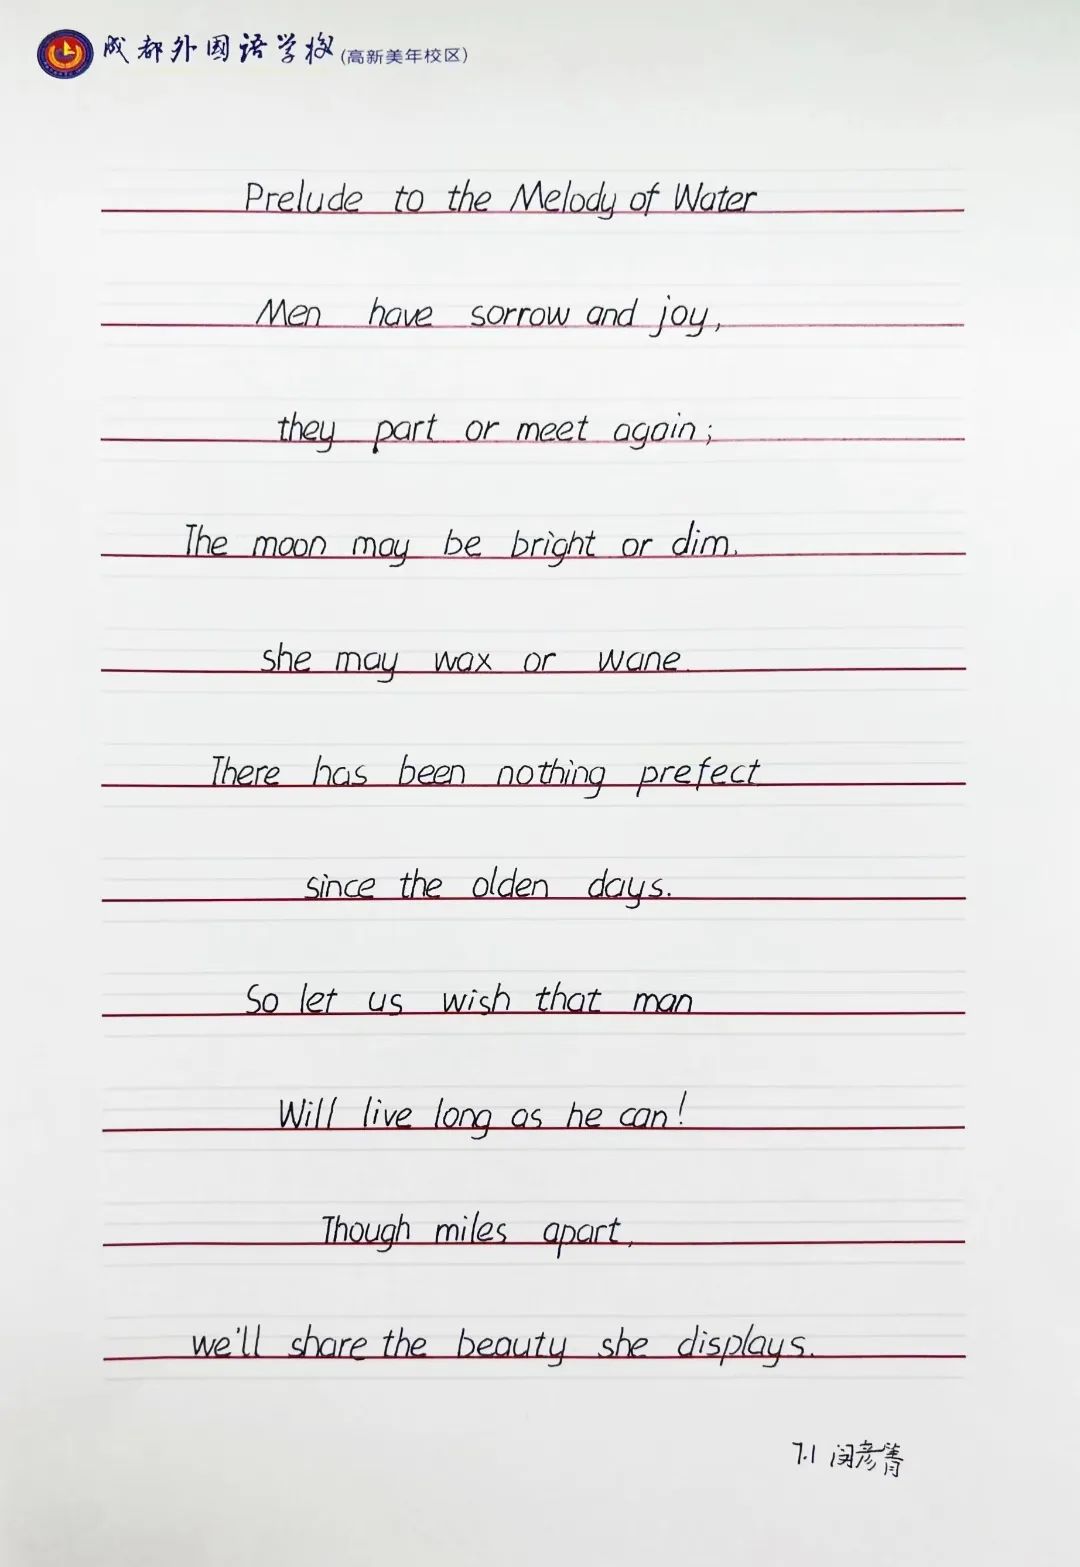 成都外国语学校(高新美年校区)
Prelude to the Melody of Water
Men have sorrow and joy,
they part or meet again;
The moon may be bright or dim.
she may wax or wane.
There has been nothing prefect
since the olden days.
So let us wish that man
Will live long as he can!
Though miles apart,
we'll share the beauty she displays.
7.1 闵彦菁